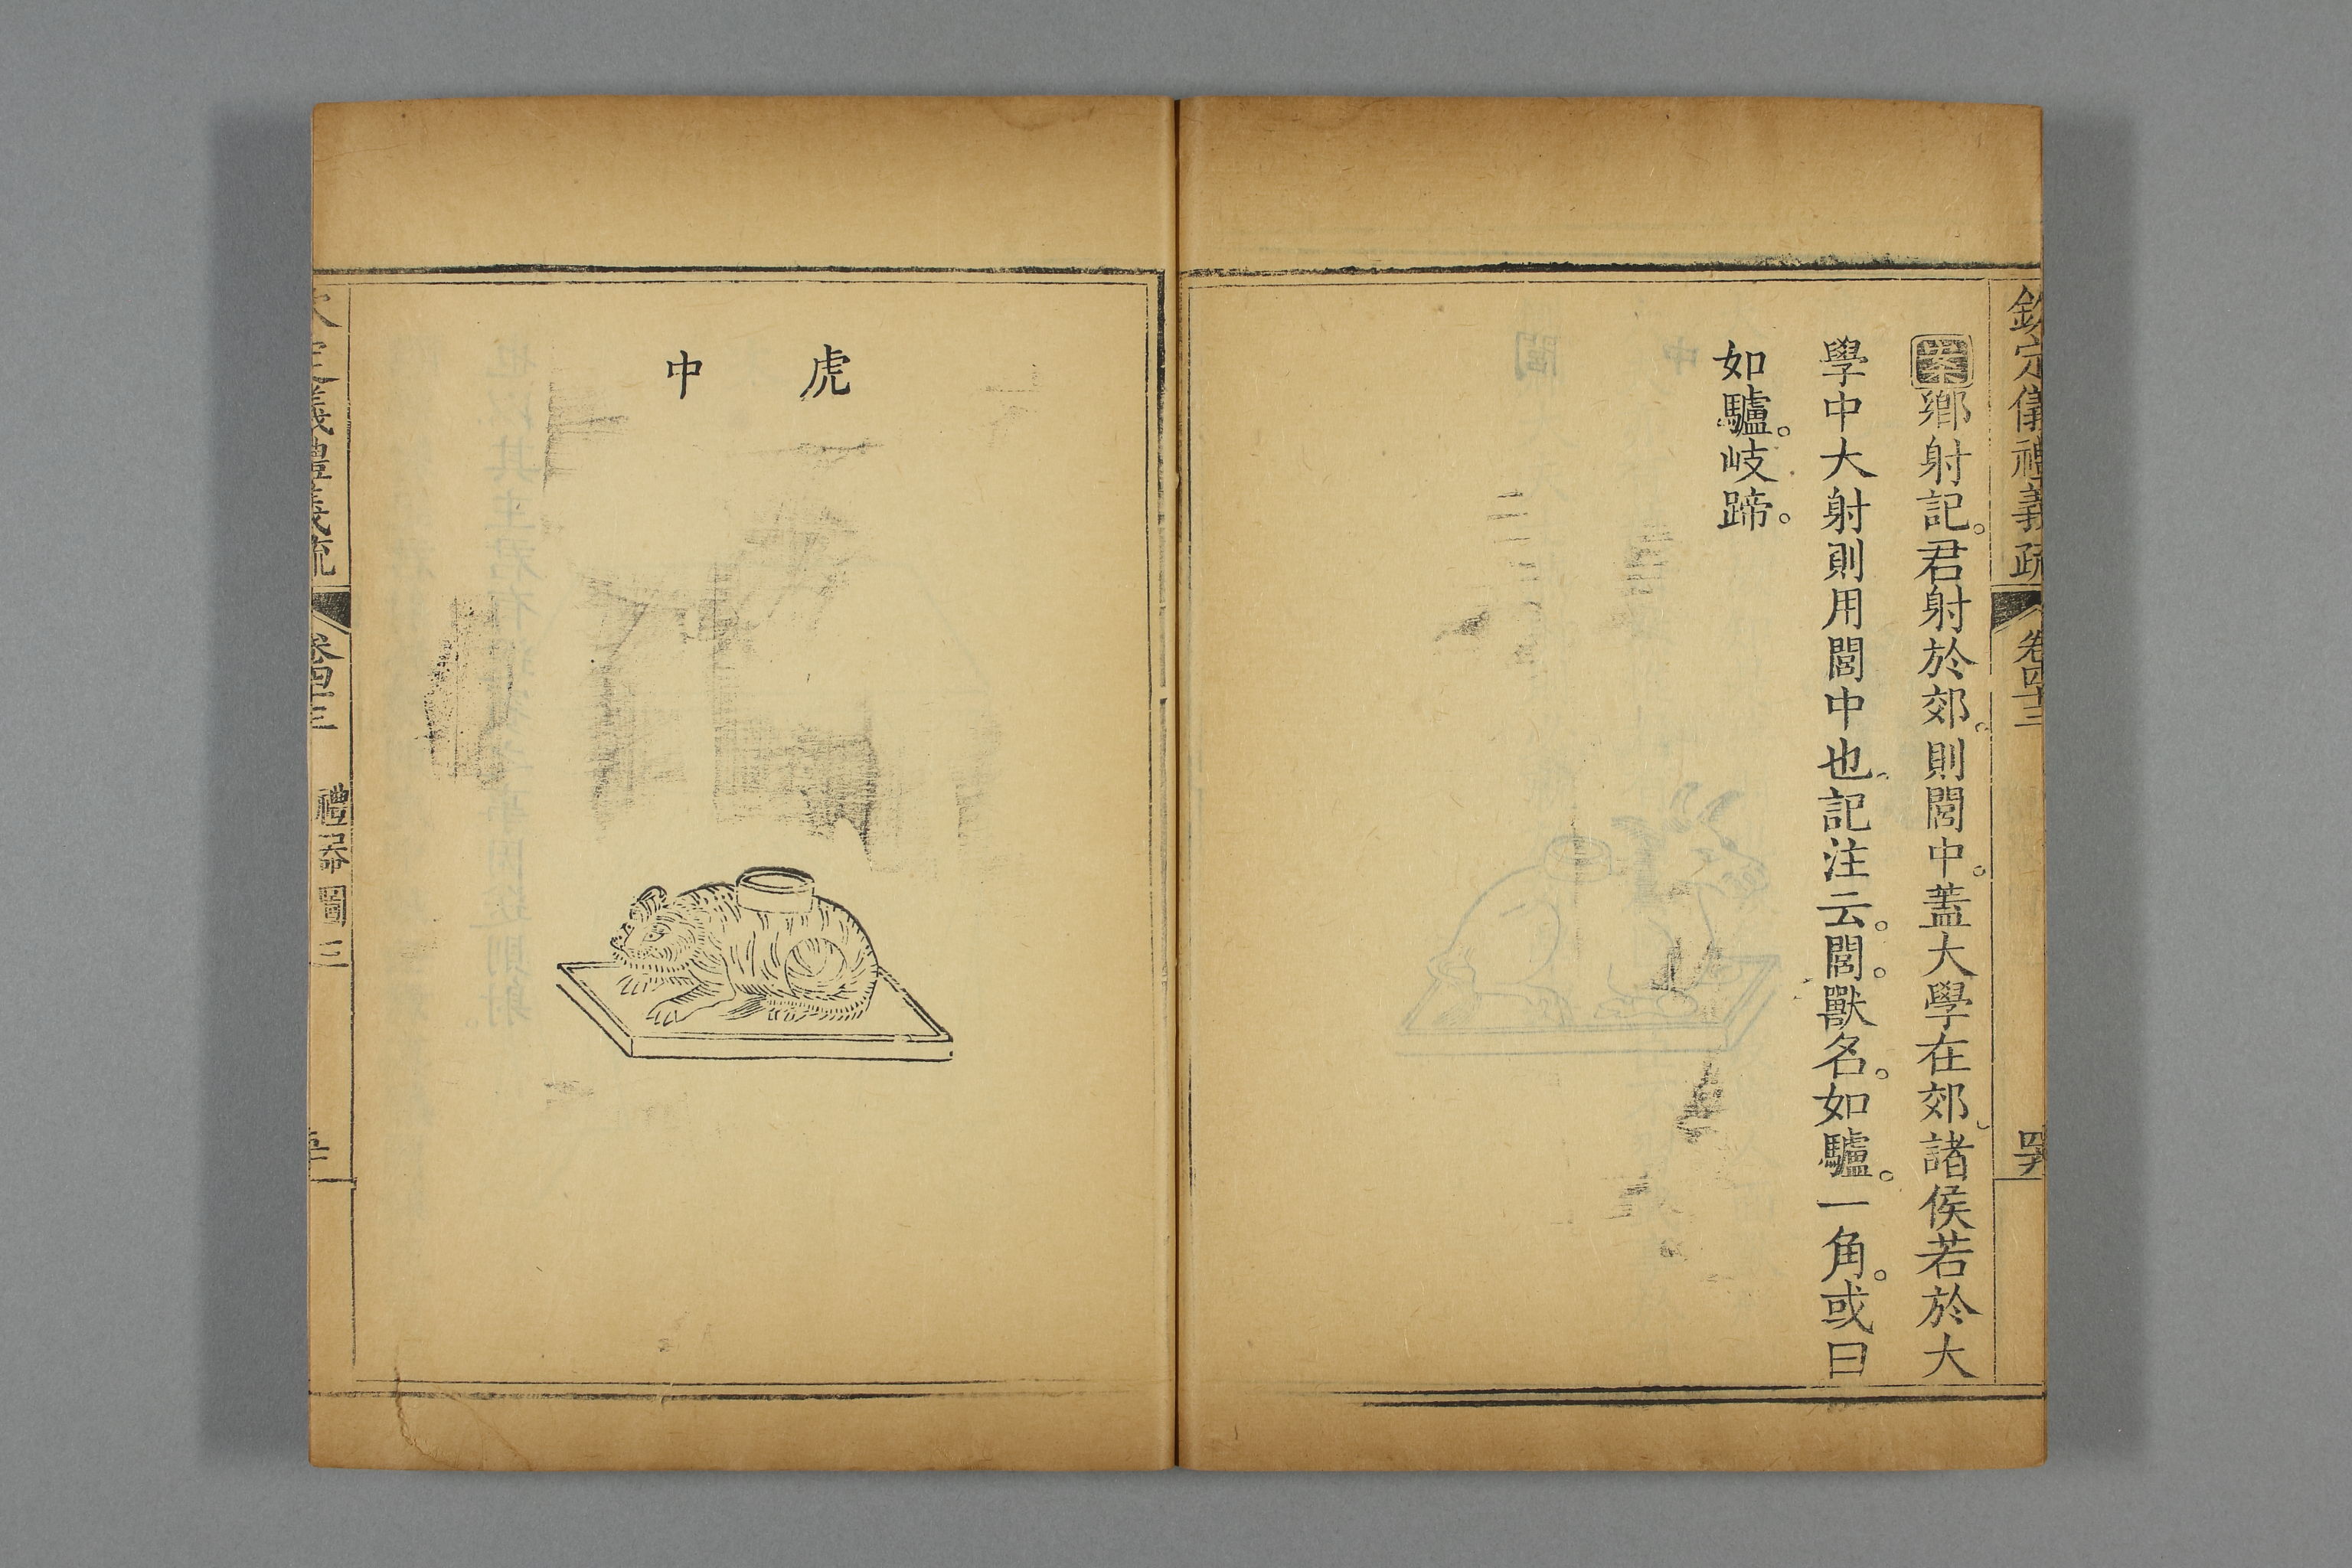 欽定儀禮義疏 卷四十三
案鄉射記。君射於郊。則閭中。蓋大學在郊、諸侯若於大
學中大射則用閭中也。記注云。閭。獸名。如驢。一角。或曰
如驢。岐蹄。
虎中
定儀禮義疏 卷四十三 禮器圖三